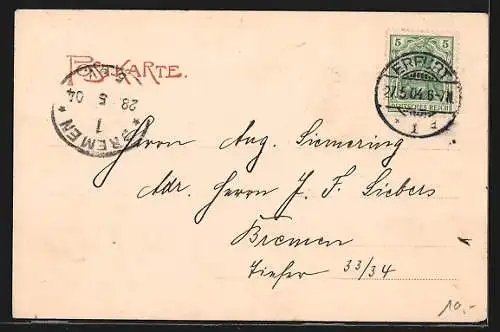 POSTKARTE.
5 5
ERFURT
27.5.04. 6-7N.
DEUTSCHES REICH
* 1 d
28 5 04
1
* BREMEN *
Herrn Aug. Siemering
Adr. Herrn J. F. Siebers
Bremen
Tiefer 33/34
10.-